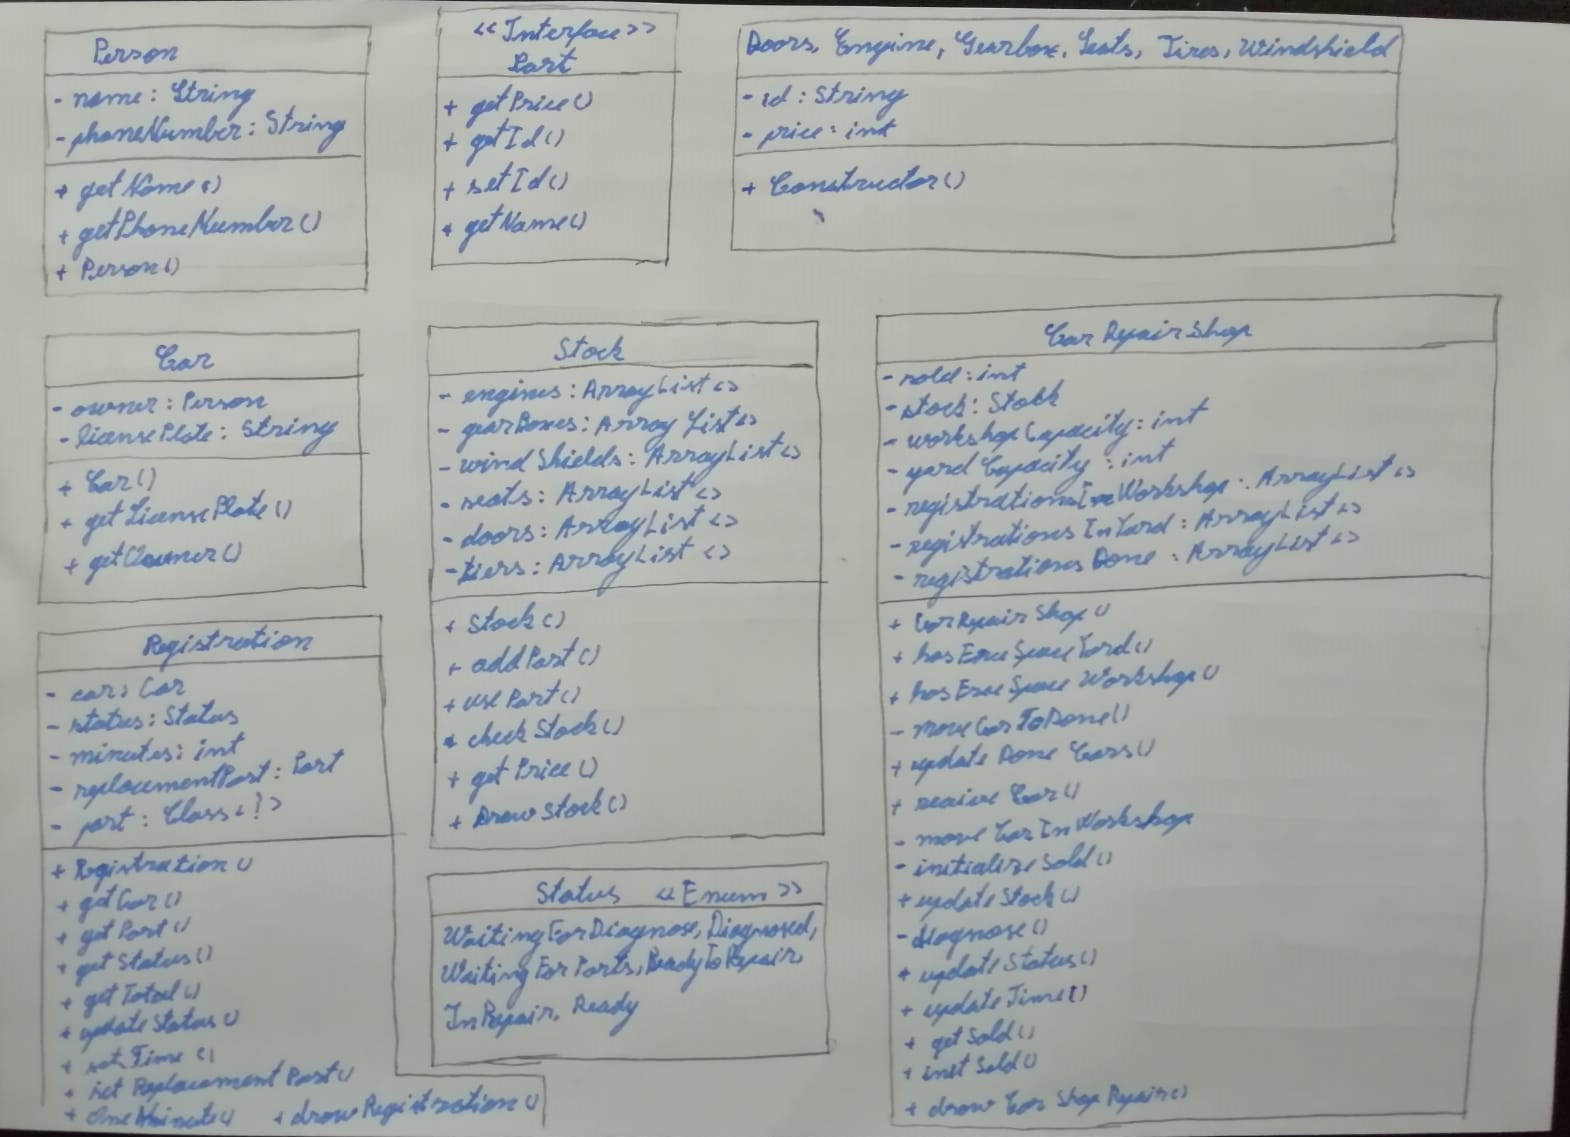 Person
- name: String
- phoneNumber: String
+ getName()
+ getPhoneNumber()
+ Person()
<<Interface>>
Part
+ getPrice()
+ getId()
+ setId()
+ getName()
Doors, Engine, Gearbox, Seats, Tires, Windshield
- id: String
- price: int
+ Constructor()
Car
- owner: Person
- licensePlate: String
+ Car()
+ getLicensePlate()
+ getOwner()
Stock
- engines: ArrayList<>
- gearBoxes: ArrayList<>
- windShields: ArrayList<>
- seats: ArrayList<>
- doors: ArrayList<>
- tiers: ArrayList<>
+ Stock()
+ addPart()
+ usePart()
+ checkStock()
+ getPrice()
+ DrawStock()
CarRepairShop
- sold: int
- stock: Stock
- workshopCapacity: int
- yardCapacity: int
- registrationsInWorkshop: ArrayList<>
- registrationsInYard: ArrayList<>
- registrationsDone: ArrayList<>
+ CarRepairShop()
+ hasFreeSpaceYard()
+ hasFreeSpaceWorkshop()
- moveCarToDone()
+ updateDoneCars()
+ receiveCar()
- moveCarInWorkshop
- initializeSold()
+ updateStock()
- diagnose()
+ updateStatus()
+ updateTime()
+ getSold()
+ initSold()
+ drawCarShopRepair()
Registration
- car: Car
- status: Status
- minutes: int
- replacementPart: Part
- part: Class<?>
+ Registration()
+ getCar()
+ getPart()
+ getStatus()
+ getTotal()
+ updateStatus()
+ setTime()
+ setReplacementPart()
+ OneMinute() + drawRegistration()
Status <<Enum>>
WaitingForDiagnose, Diagnosed,
WaitingForParts, ReadyToRepair,
InRepair, Ready